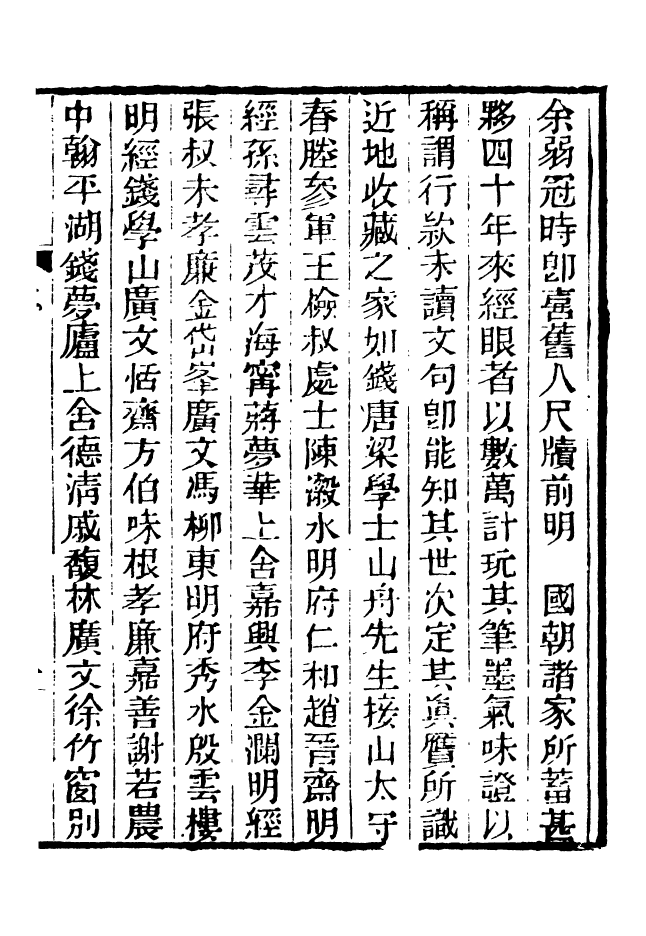 余弱冠時卽喜舊人尺牘前明　國朝諸家所蓄甚
夥四十年來經眼者以數萬計玩其筆墨氣味證以
稱謂行款未讀文句卽能知其世次定其眞贋所識
近地收藏之家如錢唐梁學士山舟先生接山太守
春塍參軍王檢叔處士陳瀔水明府仁和趙晉齋明
經孫尋雲茂才海甯蔣夢華上舍嘉興李金瀾明經
張叔未孝廉金岱峯廣文馮柳東明府秀水殷雲樓
明經錢學山廣文恬齋方伯味根孝廉嘉善謝若農
中翰平湖錢夢廬上舍德淸戚馥林廣文徐竹窗別